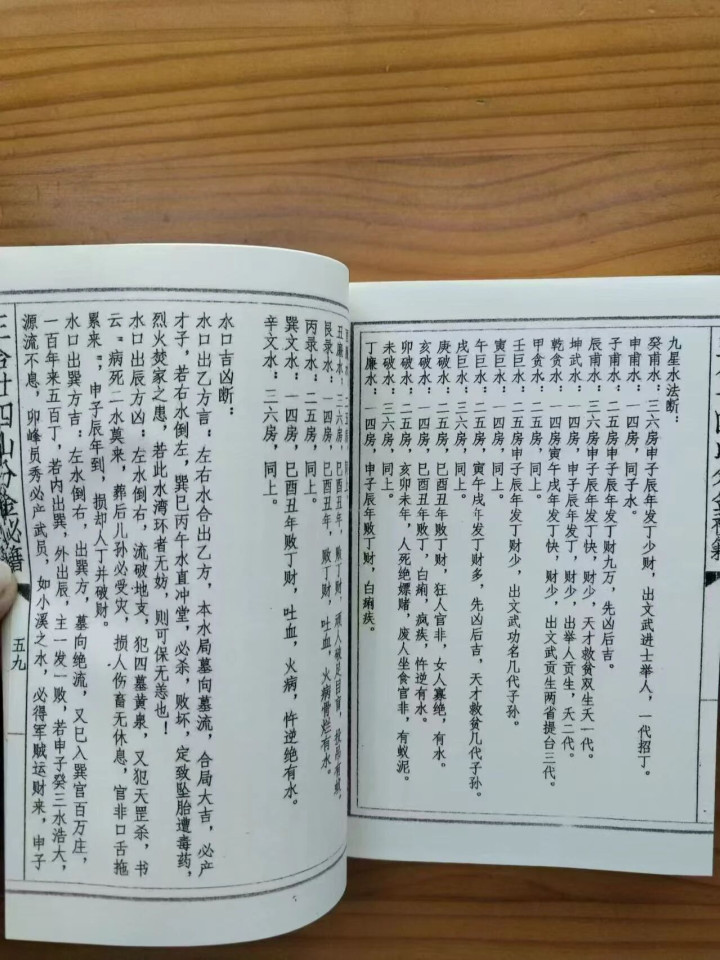 九星水法断：
癸甫水：三六房申子辰年发丁少财，出文武进士举人，一代招丁。
申甫水：一四房，同子水。
子甫水：二五房，申子辰年发丁财九万，先凶后吉。
辰甫水：三六房申子辰年发丁快，财少，天才救贫双生天一代。
坤武水：一四房，申子辰年发丁，财少，出举人贡生，天二代。
乾贪水：一四房寅午戌年发丁快，财少，出文武贡生两省提台三代。
甲贪水：三六房，同上。
壬巨水：二五房申子辰年发丁财少，出文武功名几代子孙。
寅巨水：三六房，同上。
午巨水：二五房，寅午戌年发丁财多，先凶后吉，天才救贫几代子孙。
戌巨水：三六房，同上。
庚破水：二五房，巳酉丑年败丁财，狂人官非，女人寡绝，有水。
亥破水：一四房，巳酉丑年败丁财，白痢，疯疾，忤逆有水。
卯破水：二五房，亥卯未年，人死绝嫖赌，废人坐食官非，有蚁泥。
未破水：三六房，同上。
丁廉水：一四房，申子辰年败丁财，白痢疾。
丑廉水：三六房，同上。
艮录水：一四房，巳酉丑年，败丁财，吐血，火病骨烂有水。
丙录水：二五房，同上。
巽文水：一四房，巳酉丑年败丁财，吐血，火病，忤逆绝有水。
辛文水：三六房，同上。
水口吉凶断：
水口出乙方言：左右水合出乙方，本水局墓向墓流，合局大吉，必产
才子，若右水倒左，巽巳丙午水直冲堂，必杀，败坏，定致坠胎遭毒药，
烈火焚家之患，若此水湾环者无妨，则可保无恙也！
水口出辰方凶：左水倒右，流破地支，犯四墓黄泉，又犯天罡杀，书
云“病死二水莫来，葬后儿孙必受灾，损人伤畜无休息，官非口舌拖
累来”，申子辰年到，损却人丁并破财。
水口出巽方吉：左水倒右，出巽方，墓向绝流，又巳入巽宫百万庄，
一百年来五百丁，若内出巽，外出辰，主一发一败，若申子癸三水浩大，
源流不息，卯峰员秀必产武员，如小溪之水，必得军贼运财来，申子
五九